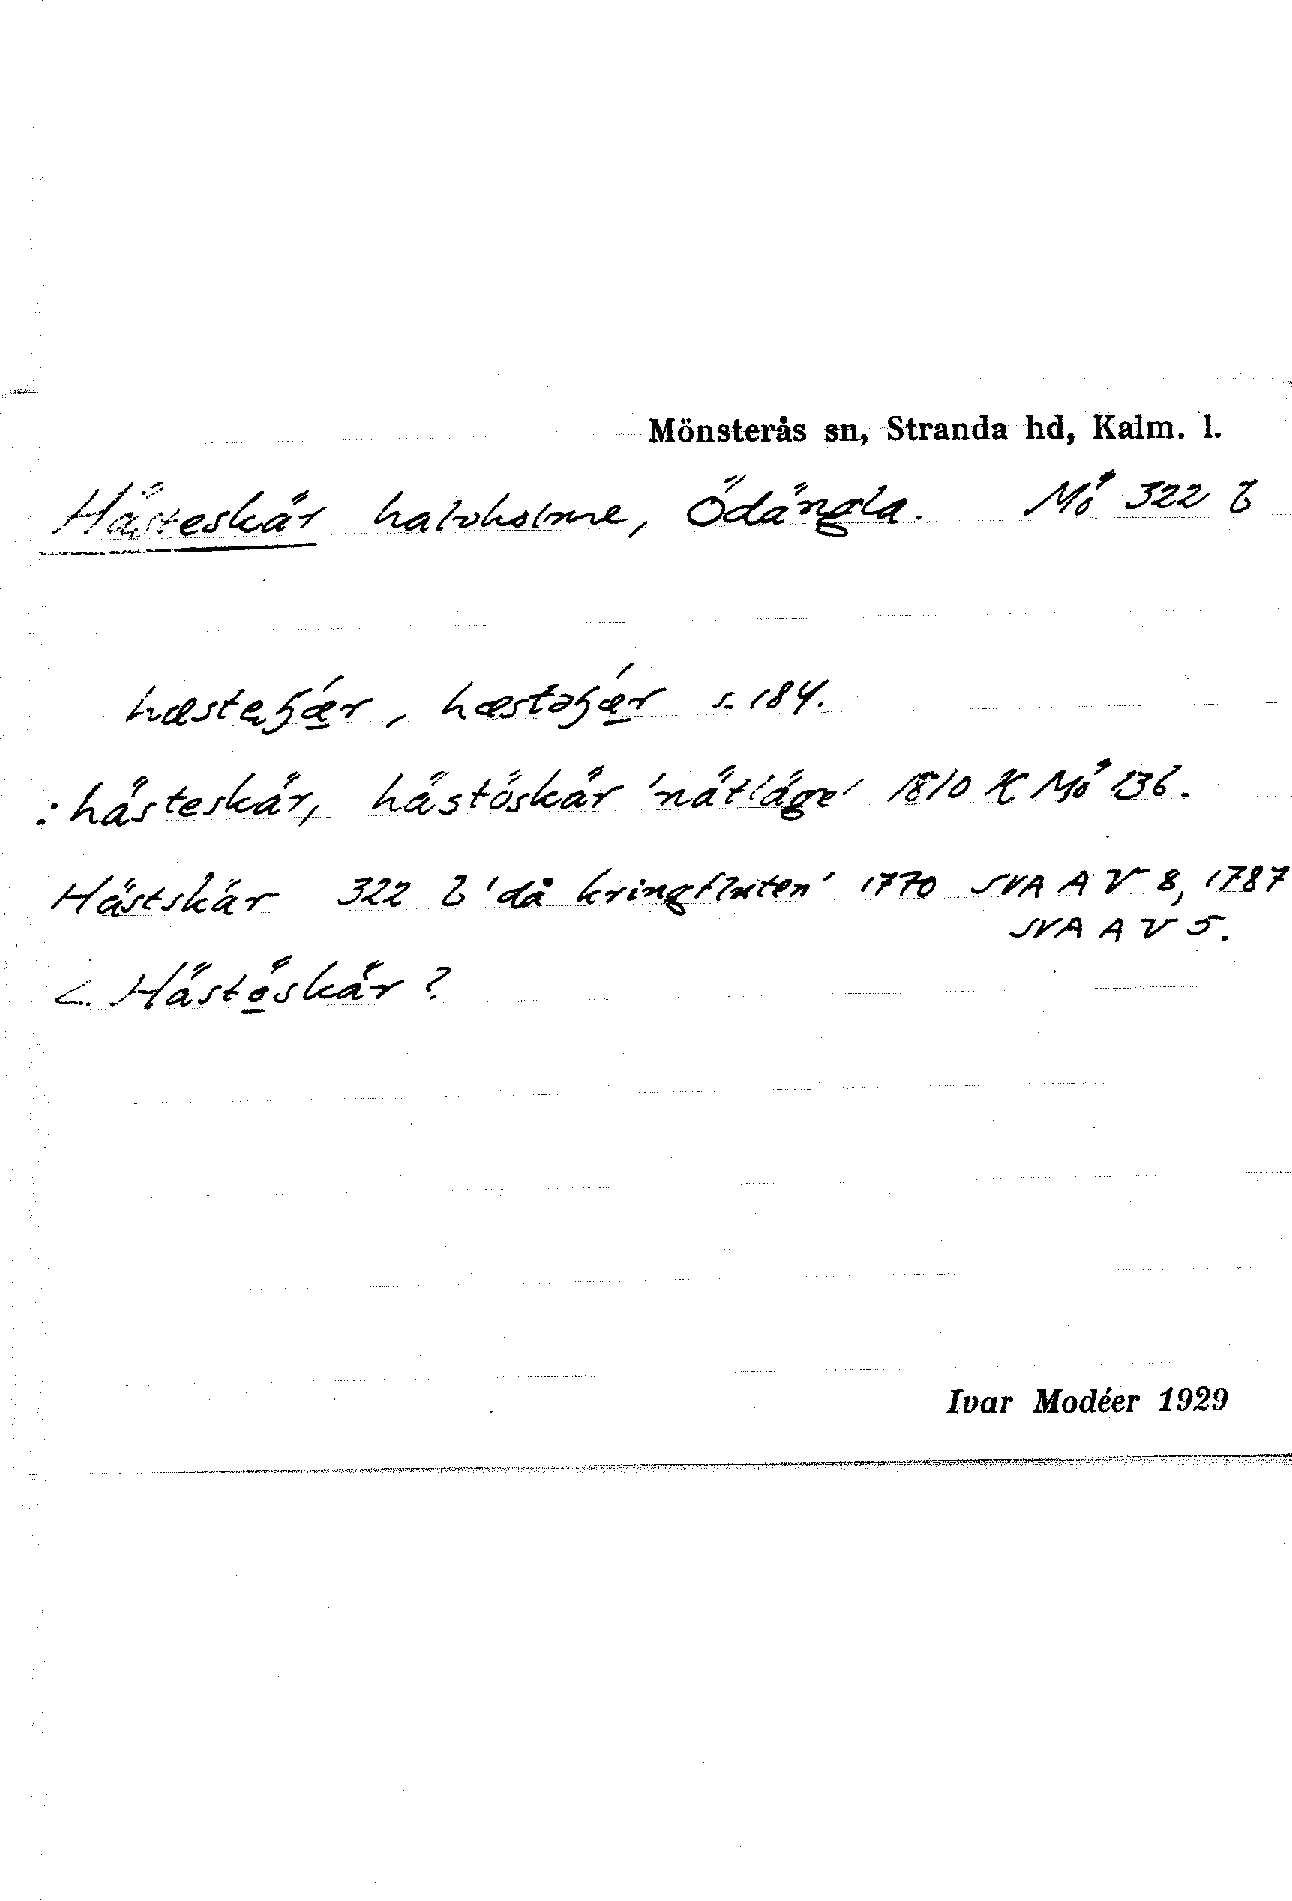 Mönsterås sn, Stranda hd, Kalm. l.
Hästeskär halvholme, Ödängla. Mö 322 b
hæsteʃǽ̲r, hæstəʃǽ̲r s. 184.
: hästeskär, hästöskär 'nätläge' 1810 K Mö 136.
Hästskär 322 b 'då kringfluten' 1770 SVA A V 8, 1787
SVA A V 5.
< Hästöskär?
Ivar Modéer 1929